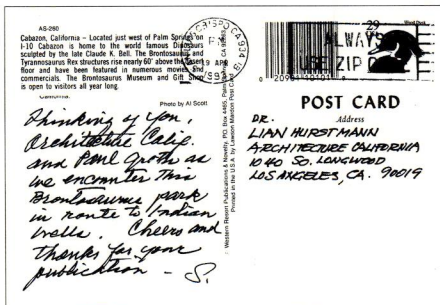 AS-260
Cabazon, California – Located just west of Palm Springs on
I-10 Cabazon is home to the world famous Dinosaurs
sculpted by the late Claude K. Bell. The Brontosaurus and
Tyrannosaurus Rex structures rise nearly 60' above the desert
floor and have been featured in numerous movies and
commercials. The Brontosaurus Museum and Gift Shop
is open to visitors all year long.
California.
Photo by Al Scott
Thinking of you,
Architecture Calif.
and Paul Groth as
we encounter this
Brontosaurus park
in route to Indian
Wells. Cheers and
thanks for your
publication – S.
Western Resort Publications & Novelty, P.O. Box 4465, Palm
Printed in the U.S.A. by Lawson Mardon Post Card
CA 934
19 APR
199
29
Wood Duck
ALWAYS
USE ZIP CODE
POST CARD
Address
DR.
LIAN HURSTMANN
ARCHITECTURE CALIFORNIA
1040 SO. LONGWOOD
LOS ANGELES, CA. 90019